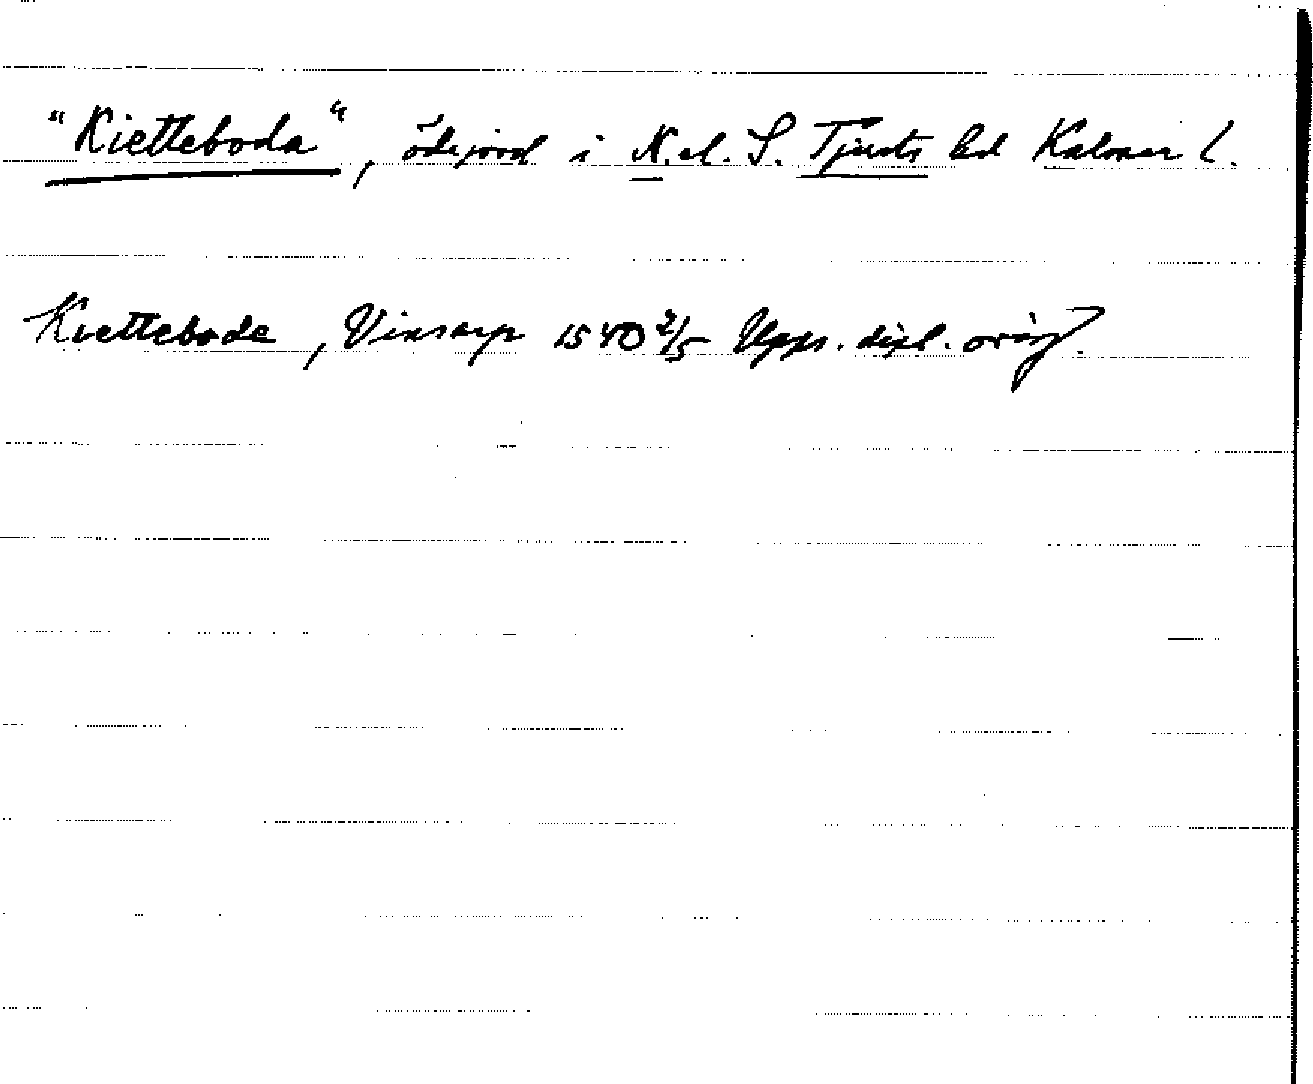 "Kietteboda", ödejord i N. el. S. Tjusts hd Kalmar l.
Kiettebode, Vinsarp 1540 2/5 Upps. dipl. orig.